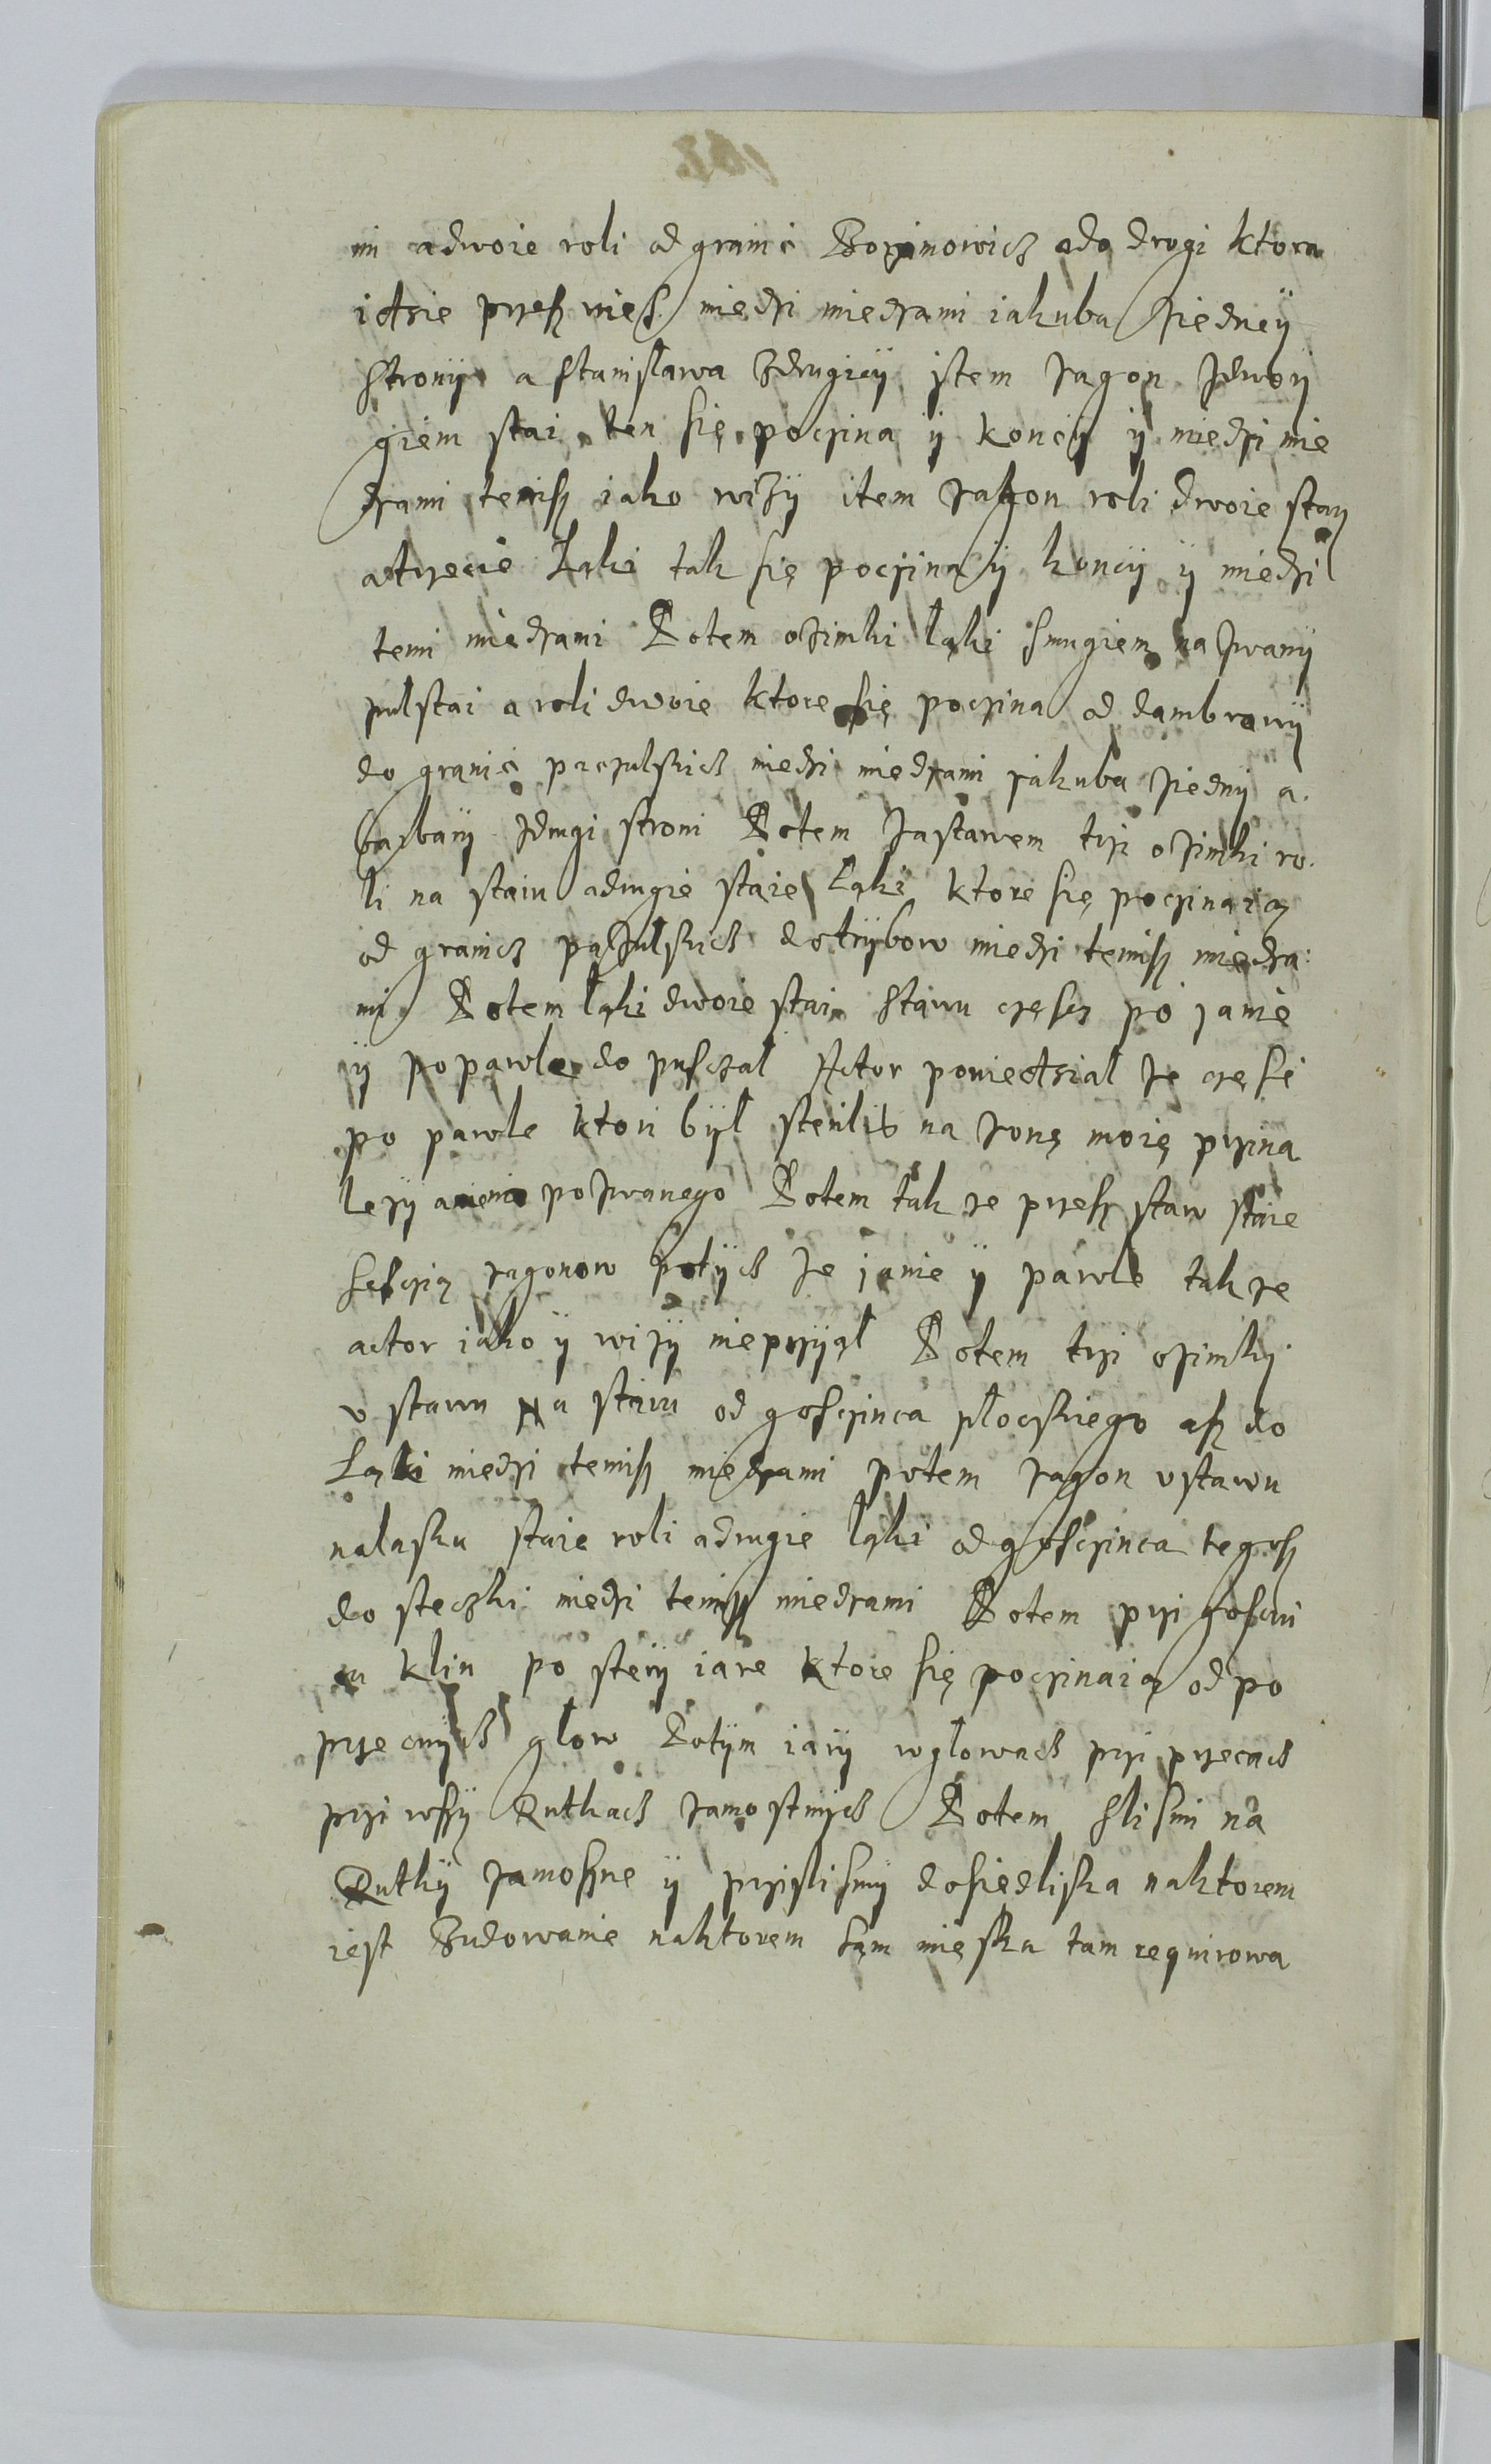 ni a dwoie roli od granic Bozimowich a do drogi ktora
idzie przesz wies miedzi miedzami iakuba ziedneÿ
stronÿ a stanisława zdrugieÿ item zagon zdwoÿ
giem stai ten się poczina ÿ koncÿ ÿ miedzi mie
dzami temisz iako wizÿ item zagon roli dwoie staÿ
a trzecie Łąki tak się poczina ÿ koncÿ ÿ miedzi
temi miedzami Potem ozimki łąki smugiem nazwanÿ
pulstai a roli dwoie ktore się poczina od dambrowÿ
do granic paczulskich miedzi miedzami jakuba ziednÿ a
barbarÿ zdrugi stroni Potem zastawem trzi ozimki ro
li na staiu a drugie staie Łąki ktore się poczinaią
od granich paczulskich do trÿbow miedzi temisz miedza
mi Potem łąki dwoie stai stawu częscz po janie
ÿ po pawle do pusczal Actor powiedzial ze częsc
po pawle ktori bÿl sterilis na zonę moię przina
lezÿ a niena pozwanego Potem tak ze przesz staw staie
sescią zagonow potÿch ze janie ÿ pawle tak ze
actor iako ÿ wizÿ nie przÿąl Potem trzi ozimkÿ
v stawu Na staiu od goscinca płockiego asz do
Łąki miedzi temisz miedzami potem zagon v stawu
nalasku staie roli a drugie łąki od goscinca tegosz
do steczki miedzi temisz miedzami Potem przi goscin
cu klin po sterÿ iare ktore się poczinaią od po
przecnÿch głow Potÿm iarÿ wgłowach przi przecach
przi wsÿ Rutkach zamostnÿch Potem slismi na
Rutkÿ zamosne ÿ przislismÿ do siedliska naktorem
iest Budowanie naktorem sąm mięska tam requirowa